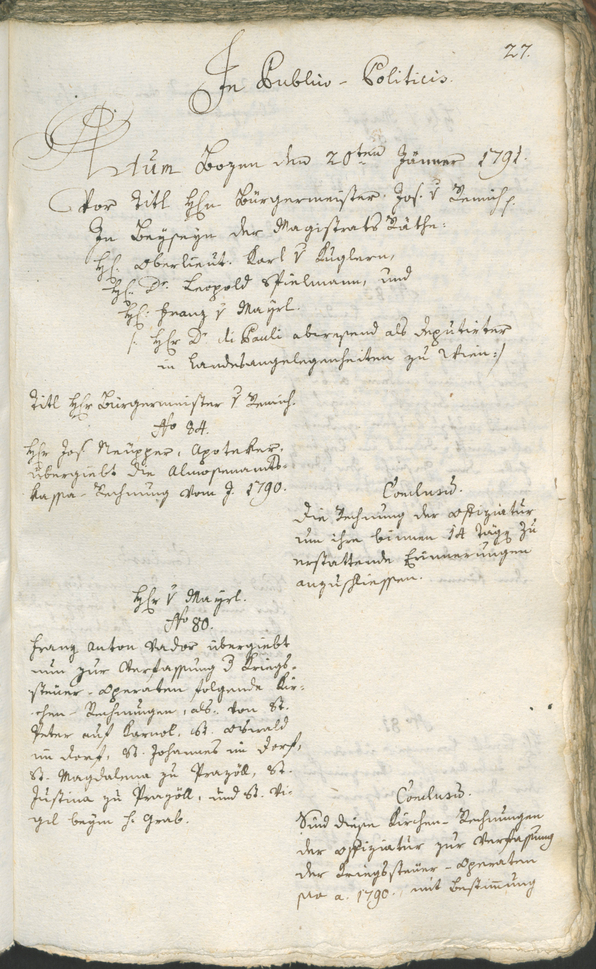 27.
In Publico-Politicis.
Actum Bozen den 20ten Jänner 1791.
Vor Titl Hhn Bürgermeister Jos. v Remich.
In Beyseyn der Magistrats Räthe:
Hh. Oberlieut. Karl v Kuglern,
Hh. Dr. Leopold Spielmann, und
Hh. Franz v Mayrl.
/: Hhr Dr di Pauli abwesend als deputirter
in Landesangelegenheiten zu Wien:/
Titl Hhr Bürgermeister v Remich.
No 84.
Hhr Jos Neupper, Apoteker,
übergiebt die Almosenamts-
kassa-Rechnung vom J. 1790.
Conclusu.
Die Rechnung der Offiziatur
um ihre binnen 14 Tägg zu
erstattende Erinnerungen
anzuschliessen.
Hhr v Mayrl.
No 80.
Franz Anton Vador übergiebt
nun zur Verfassung d Kriegs-
steuer-Operaten folgende Kir-
chen-Rechnungen, als: von St.
Peter auf Karnol, St. Oswald
im Dorf, St. Johannes im Dorf,
St. Magdalena zu Prazöll, St.
Justina zu Prazöll, und St. Vi-
gil beym h. Grab.
Conclusu.
Sind diese Kirchen-Rechnungen
der Offiziatur zur Verfassung
der Kriegssteuer-Operaten
pro a. 1790. mit Bestimmung